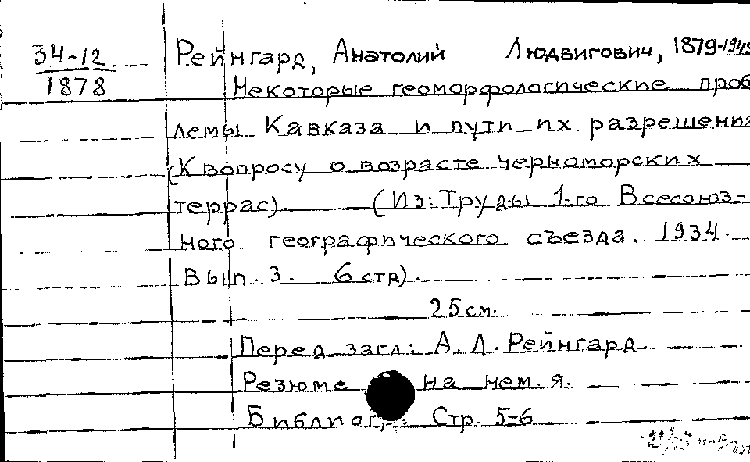 34-12 Рейнгард, Анатолий Людвигович, 1879-1945
1878 Некоторые геоморфологические проб
лемы Кавказа и пути их разрешения
(К вопросу о возрасте черноморских
террас). (Из: Труды 1-го Всесоюз-
ного географического съезда. 1934.
Вып. 3. 6 стр).
25 см.
Перед загл: А. Л. Рейнгард
Резюме на нем. я.
Библиог, Стр. 5-6